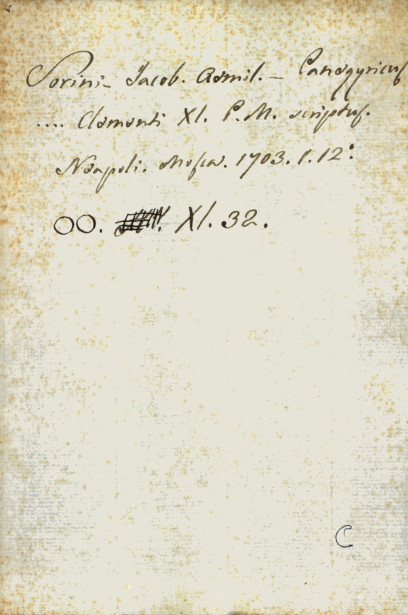 Porini Jacob. Aemil. — Panegyricus
.... Clementi XI. P. M. scriptus.
Neapoli. Mosca. 1703. 1. 12°.
OO. XI. 32.
C